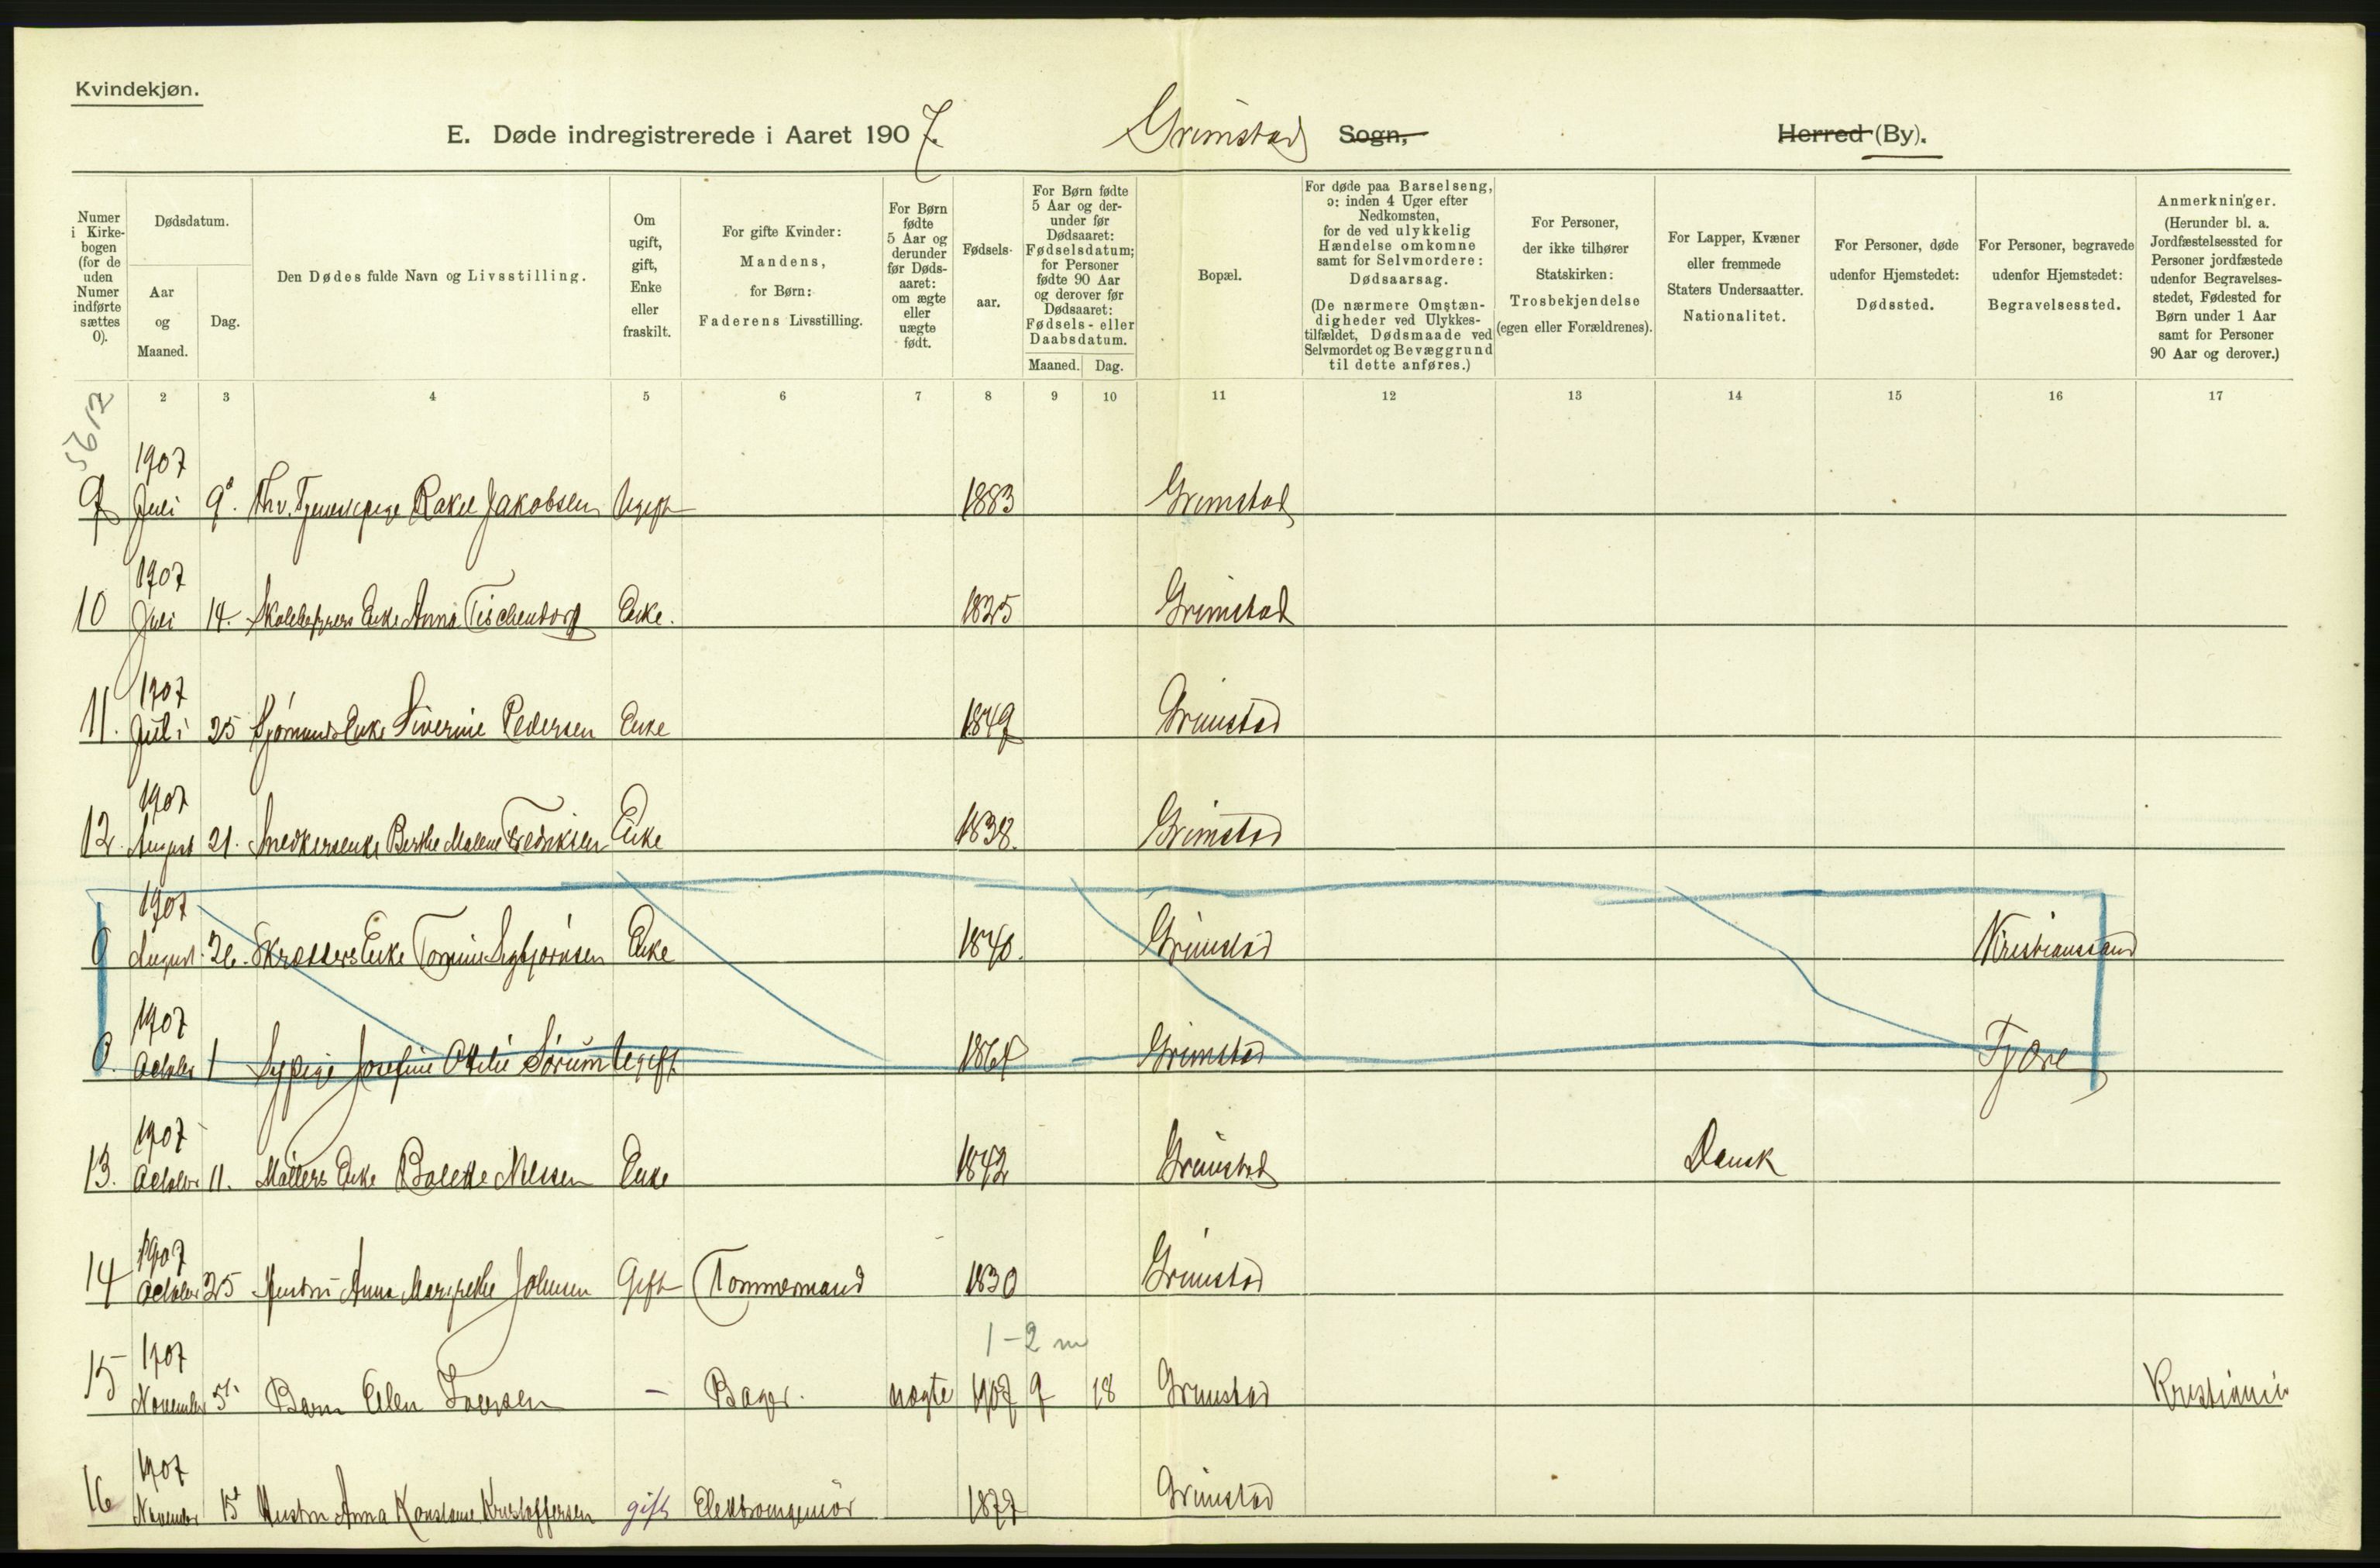 Kvindekjøn.
E. Døde indregistrerede i Aaret 1907. Grimstad Sogn, Herred (By).
Numer i Kirkebogen (for de uden Numer indførte sættes 0).
Dødsdatum.
Aar og Maaned.
Dag.
Den Dødes fulde Navn og Livsstilling.
Om ugift, gift, Enke eller fraskilt.
For gifte Kvinder: Mandens, for Børn: Faderens Livsstilling.
For Børn fødte 5 Aar og derunder før Dødsaaret: om ægte eller uægte født.
Fødselsaar.
For Børn fødte 5 Aar og derunder før Dødsaaret: Fødselsdatum; for Personer fødte 90 Aar og derover før Dødsaaret: Fødsels- eller Daabsdatum.
Maaned. Dag.
Bopæl.
For døde paa Barselseng, ɔ: inden 4 Uger efter Nedkomsten, for de ved ulykkelig Hændelse omkomne samt for Selvmordere: Dødsaarsag.
(De nærmere Omstændigheder ved Ulykkestilfældet, Dødsmaade ved Selvmordet og Bevæggrund til dette anføres.)
For Personer, der ikke tilhører Statskirken: Trosbekjendelse (egen eller Forældrenes).
For Lapper, Kvæner eller fremmede Staters Undersaatter. Nationalitet.
For Personer, døde udenfor Hjemstedet: Dødssted.
For Personer, begravede udenfor Hjemstedet: Begravelsessted.
Anmerkninger.
(Herunder bl. a. Jordfæstelsessted for Personer jordfæstede udenfor Begravelsesstedet, Fødested for Børn under 1 Aar samt for Personer 90 Aar og derover.)
2 3 4 5 6 7 8 9 10 11 12 13 14 15 16 17
5612
1907
9 Juli 9. Rakel Jakobsen Ugift 1883 Grimstad
1907
10 Juli 14. Enke Anna Tischendorf Enke. 1825 Grimstad
1907
11. Juli 25 Sjømands Enke Siverine Pedersen Enke 1849 Grimstad
1907
12. August 21. Snedkersenke Berthe Malene Fredriksen Enke 1838. Grimstad
1907
0 August 26. Skrædders Enke Enke 1840. Grimstad Kristianssand
1907
0. October 1 Sypige Josefine Otilie Sørum Ugift Grimstad Fjære
1907
13. October 11. Enke Bolette Nilssen Enke 1842 Grimstad Dansk
1907
14 October 25 Hustru Anna Margrethe Johnsen Gift Tømmermand 1830 Grimstad
1-2 m
1907
15 November 5. Barn Ellen – Bager. uægte 1907 9 18 Grimstad Kristiania
1907
16 November 15 Hustru Anna Konstanse Kristoffersen gift 1877 Grimstad